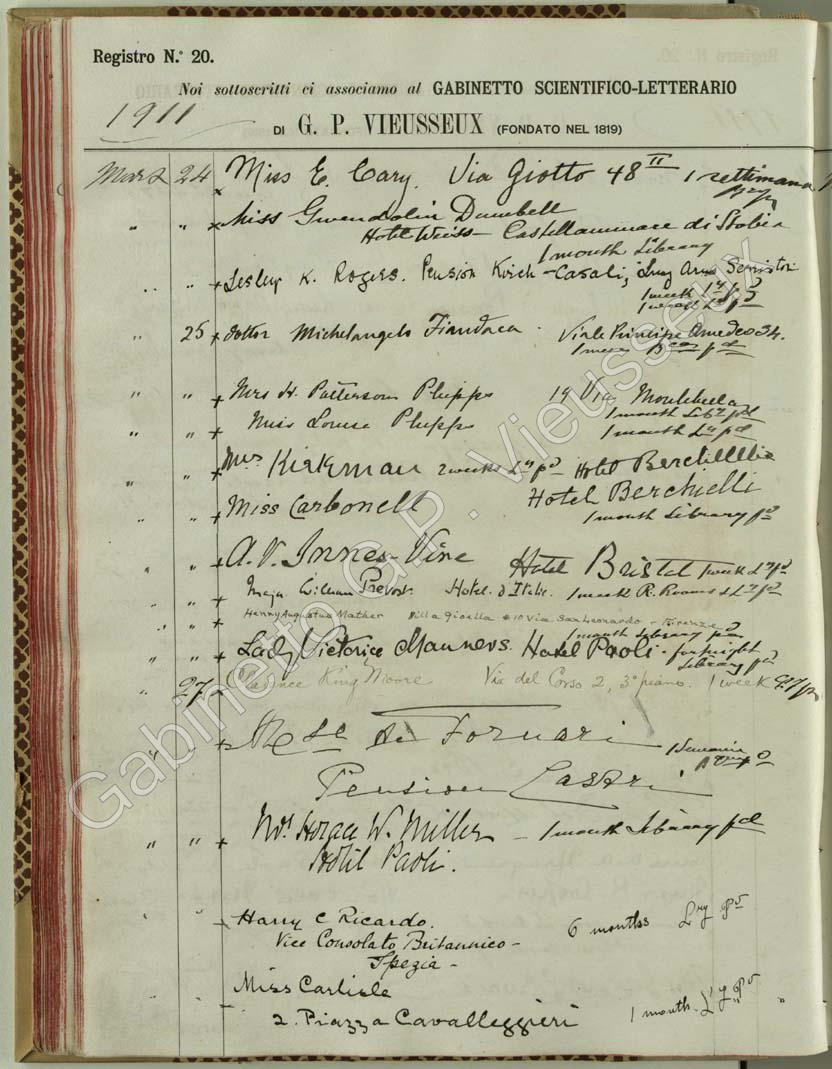 Registro N.° 20.
Noi sottoscritti ci associamo al GABINETTO SCIENTIFICO-LETTERARIO
1911
DI G. P. VIEUSSEUX (FONDATO NEL 1819)
24 Miss E. Cary. Via Giotto 48 II 1 settimana
" " Miss Gwendolin Dumbell
Hotel Weiss - Castellammare di Stabia
1 month Library
" " Lesley K. Rogers. Pension Kirch - Casali, Lung Arno Serristori
1 week
1 week
" 25 Dottor Michelangelo Viale Principe Amedeo 24.
" " Mrs H. Patterson Phipps 19 Via Montebello
1 month pd
" " Miss Louise Phipps 1 month Ly pd
" " Mrs Kirkman 2 weeks Ly pd Hotel Berchielli
" " Miss Carbonell Hotel Berchielli
1 month Library pd
" " A. V. Innes-Vine Hotel Bristol 1 week Ly pd
" " William Prevost Hotel d'Italie. 1 week R. Rooms & Ly pd
" " Henry Augustus Mather Villa Gioella 10 Via San Leonardo - Firenze
1 month Library
" " Lady Victoria Manners. Hotel Paoli. - fortnight
Library pd
" 27 Clarence King Moore Via del Corso 2, 3° piano. 1 week
" " de Fornari
Pension Casari
" " Mrs Horace W. Miller - 1 month Library pd
Hotel Paoli.
" " Harry C Ricardo. 6 months Lry pd
Vice Consolato Britannico -
Spezia -
Miss Carlisle
2. Piazza Cavalleggieri 1 month. Ly pd "
Gabinetto G.P. Vieusseux